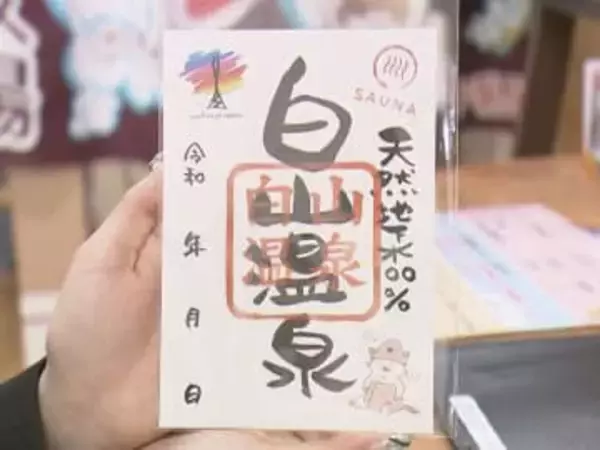 SAUNA
天然地下水100%
白山温泉
白山
温泉
令和 年 月 日